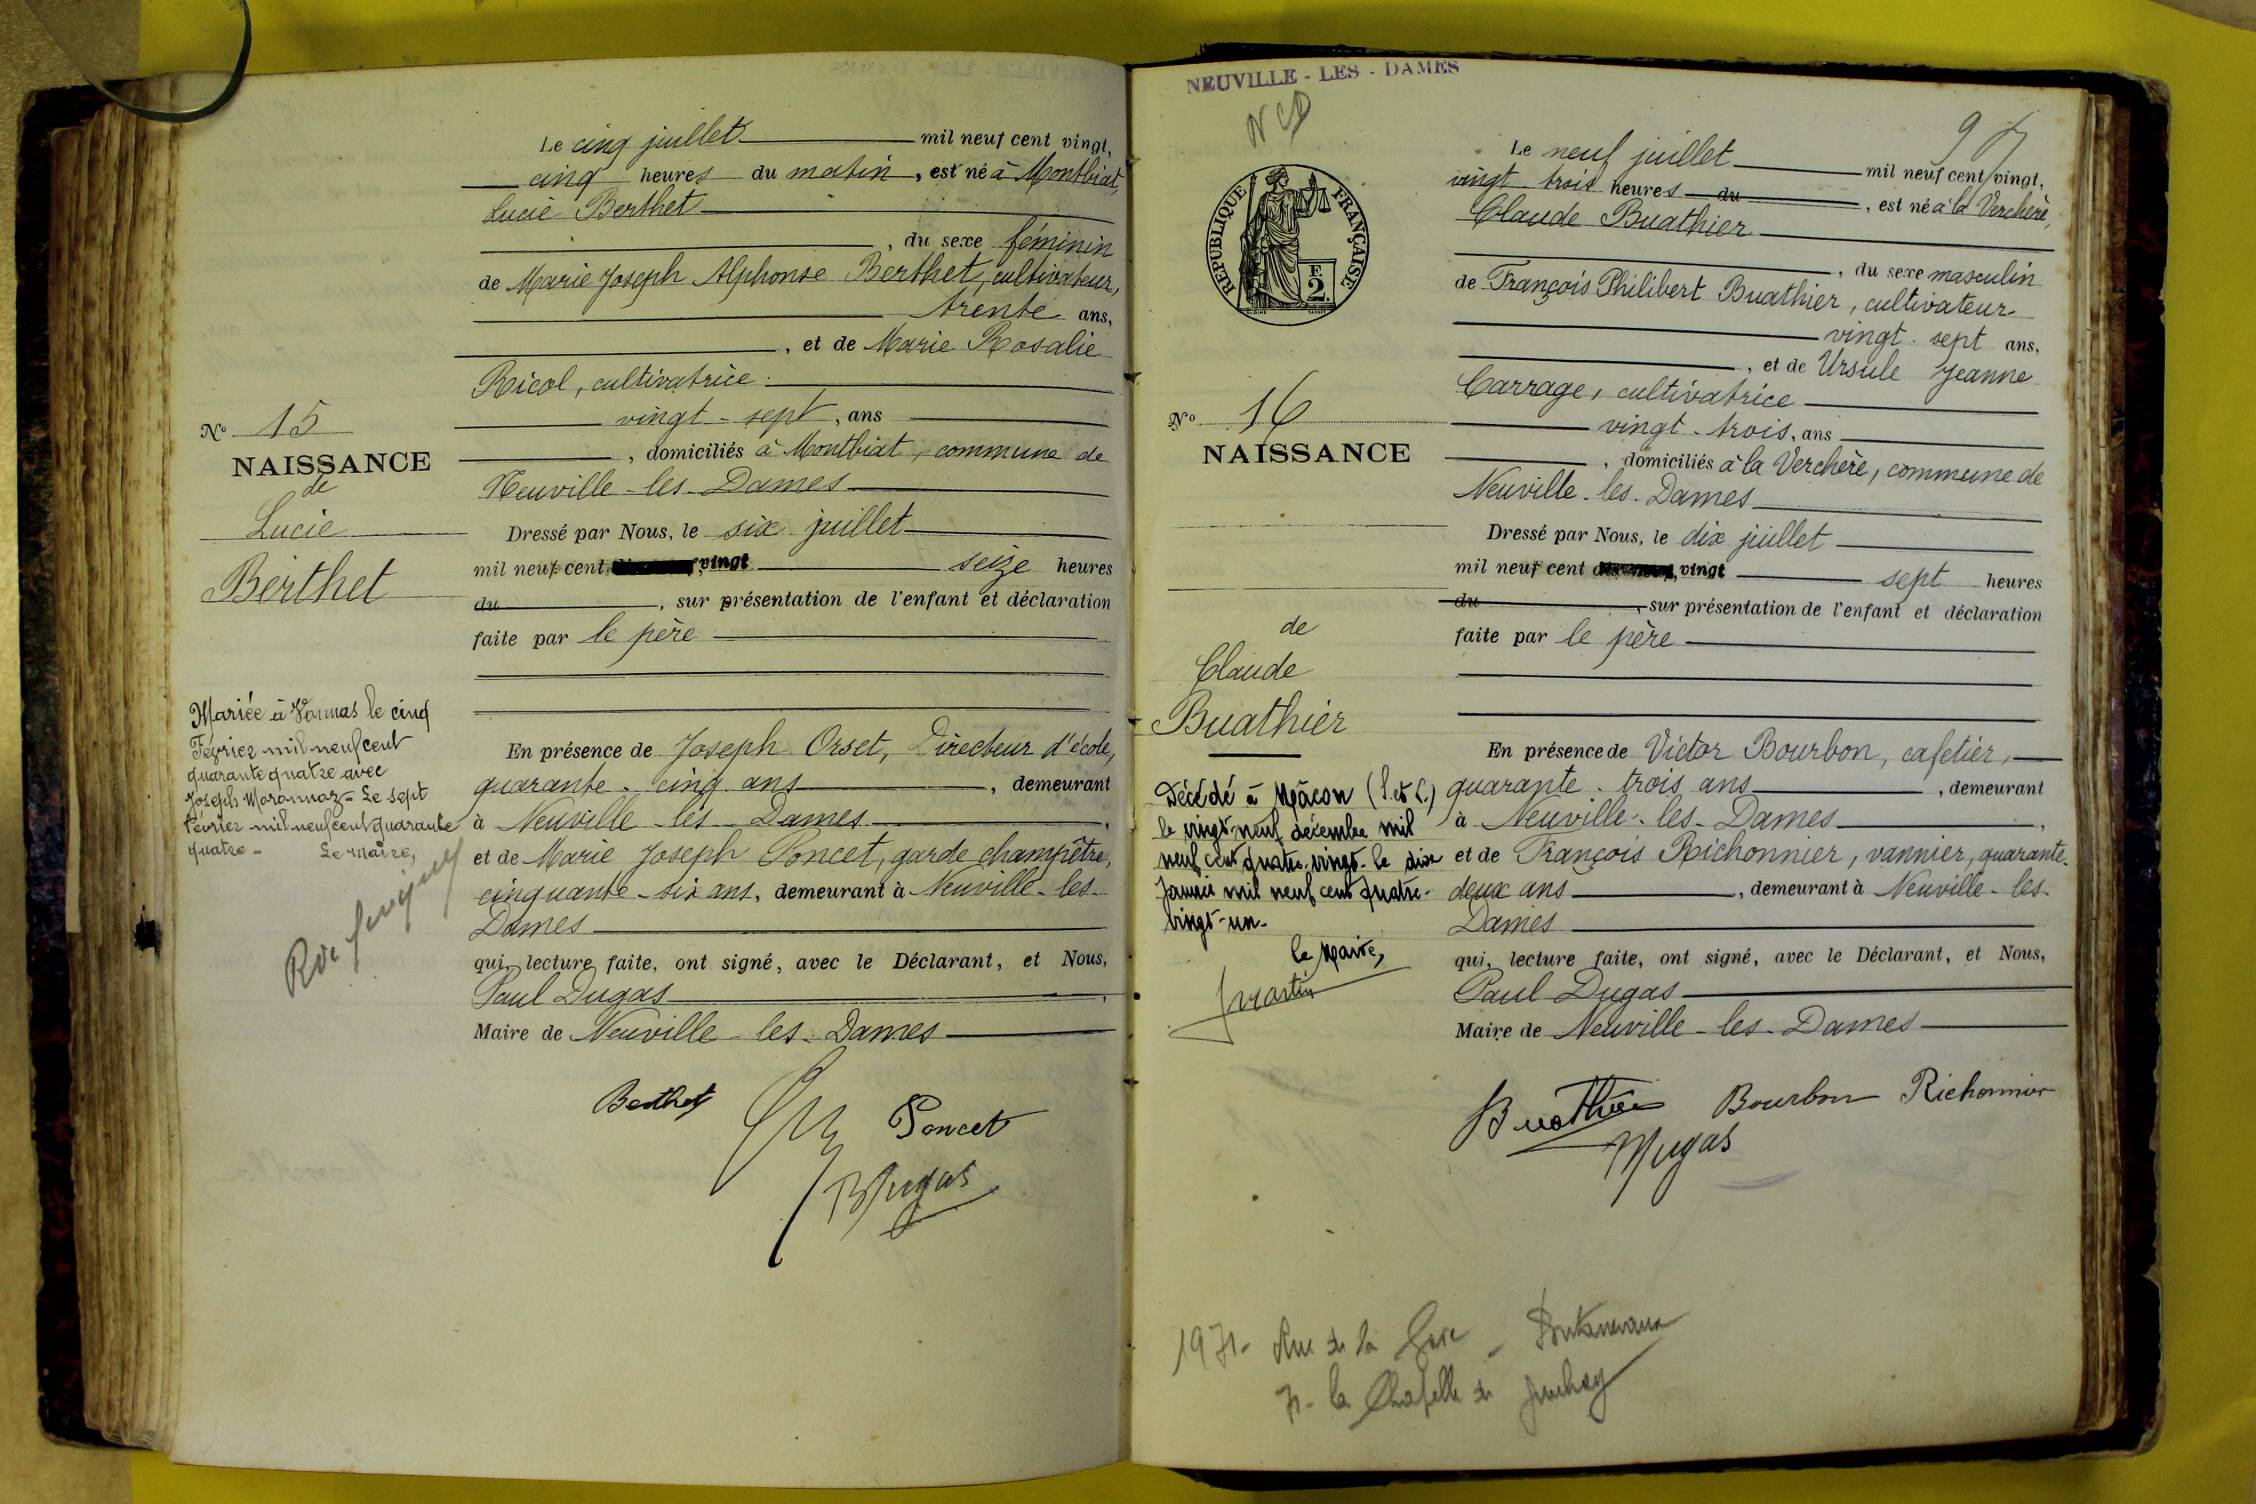 Le cinq juillet mil neuf cent vingt,
cinq heures du matin, est né à Montbiat,
Lucie Berthet
, du sexe féminin
de Marie Joseph Alphonse Berthet, cultivateur,
trente ans,
, et de Marie Rosalie
Ricol, cultivatrice
vingt-sept, ans
, domiciliés à Montbiat, commune de
Neuville-les-Dames
Dressé par Nous, le six juillet
mil neuf cent vingt seize heures
du , sur présentation de l'enfant et déclaration
faite par le père
En présence de Joseph Orset, Directeur d'école,
quarante-cinq ans , demeurant
à Neuville-les-Dames ,
et de Marie Joseph Poncet, garde champêtre,
cinquante-six ans, demeurant à Neuville-les-
Dames
qui, lecture faite, ont signé, avec le Déclarant, et Nous,
Paul Dugas ,
Maire de Neuville-les-Dames
Berthet
Poncet
PDugas
No 15
NAISSANCE
de
Lucie
Berthet
Mariée à Vonnas le cinq
Février mil neuf cent
quarante quatre avec
Joseph - Le sept
février mil neuf cent quarante
quatre - Le Maire,
NEUVILLE-LES-DAMES
RÉPUBLIQUE FRANÇAISE
F.
2
No 16
NAISSANCE
de
Claude
Buathier
Décédé à Mâcon (S. et L.)
le vingt-neuf décembre mil
neuf cent quatre-vingt - le dix
Janvier mil neuf cent quatre-
vingt-un-
le Maire,
Martin
Le neuf juillet mil neuf cent vingt,
vingt-trois heures du , est né à la Verchère,
Claude Buathier
, du sexe masculin
de François Philibert Buathier, cultivateur
vingt-sept ans,
, et de Ursule Jeanne
Carrage, cultivatrice
vingt-trois, ans
, domiciliés à la Verchère, commune de
Neuville-les-Dames
Dressé par Nous, le dix juillet
mil neuf cent vingt sept heures
du , sur présentation de l'enfant et déclaration
faite par le père
En présence de Victor Bourbon, cafetier,
quarante-trois ans , demeurant
à Neuville-les-Dames ,
et de François Richonnier, vannier, quarante-
deux ans , demeurant à Neuville-les-
Dames
qui, lecture faite, ont signé, avec le Déclarant, et Nous,
Paul Dugas
Maire de Neuville-les-Dames
Buathier Bourbon Richonnier
PDugas
1971- Rue de la Gare - Pontanevaux
71- la Chapelle de Guinchay